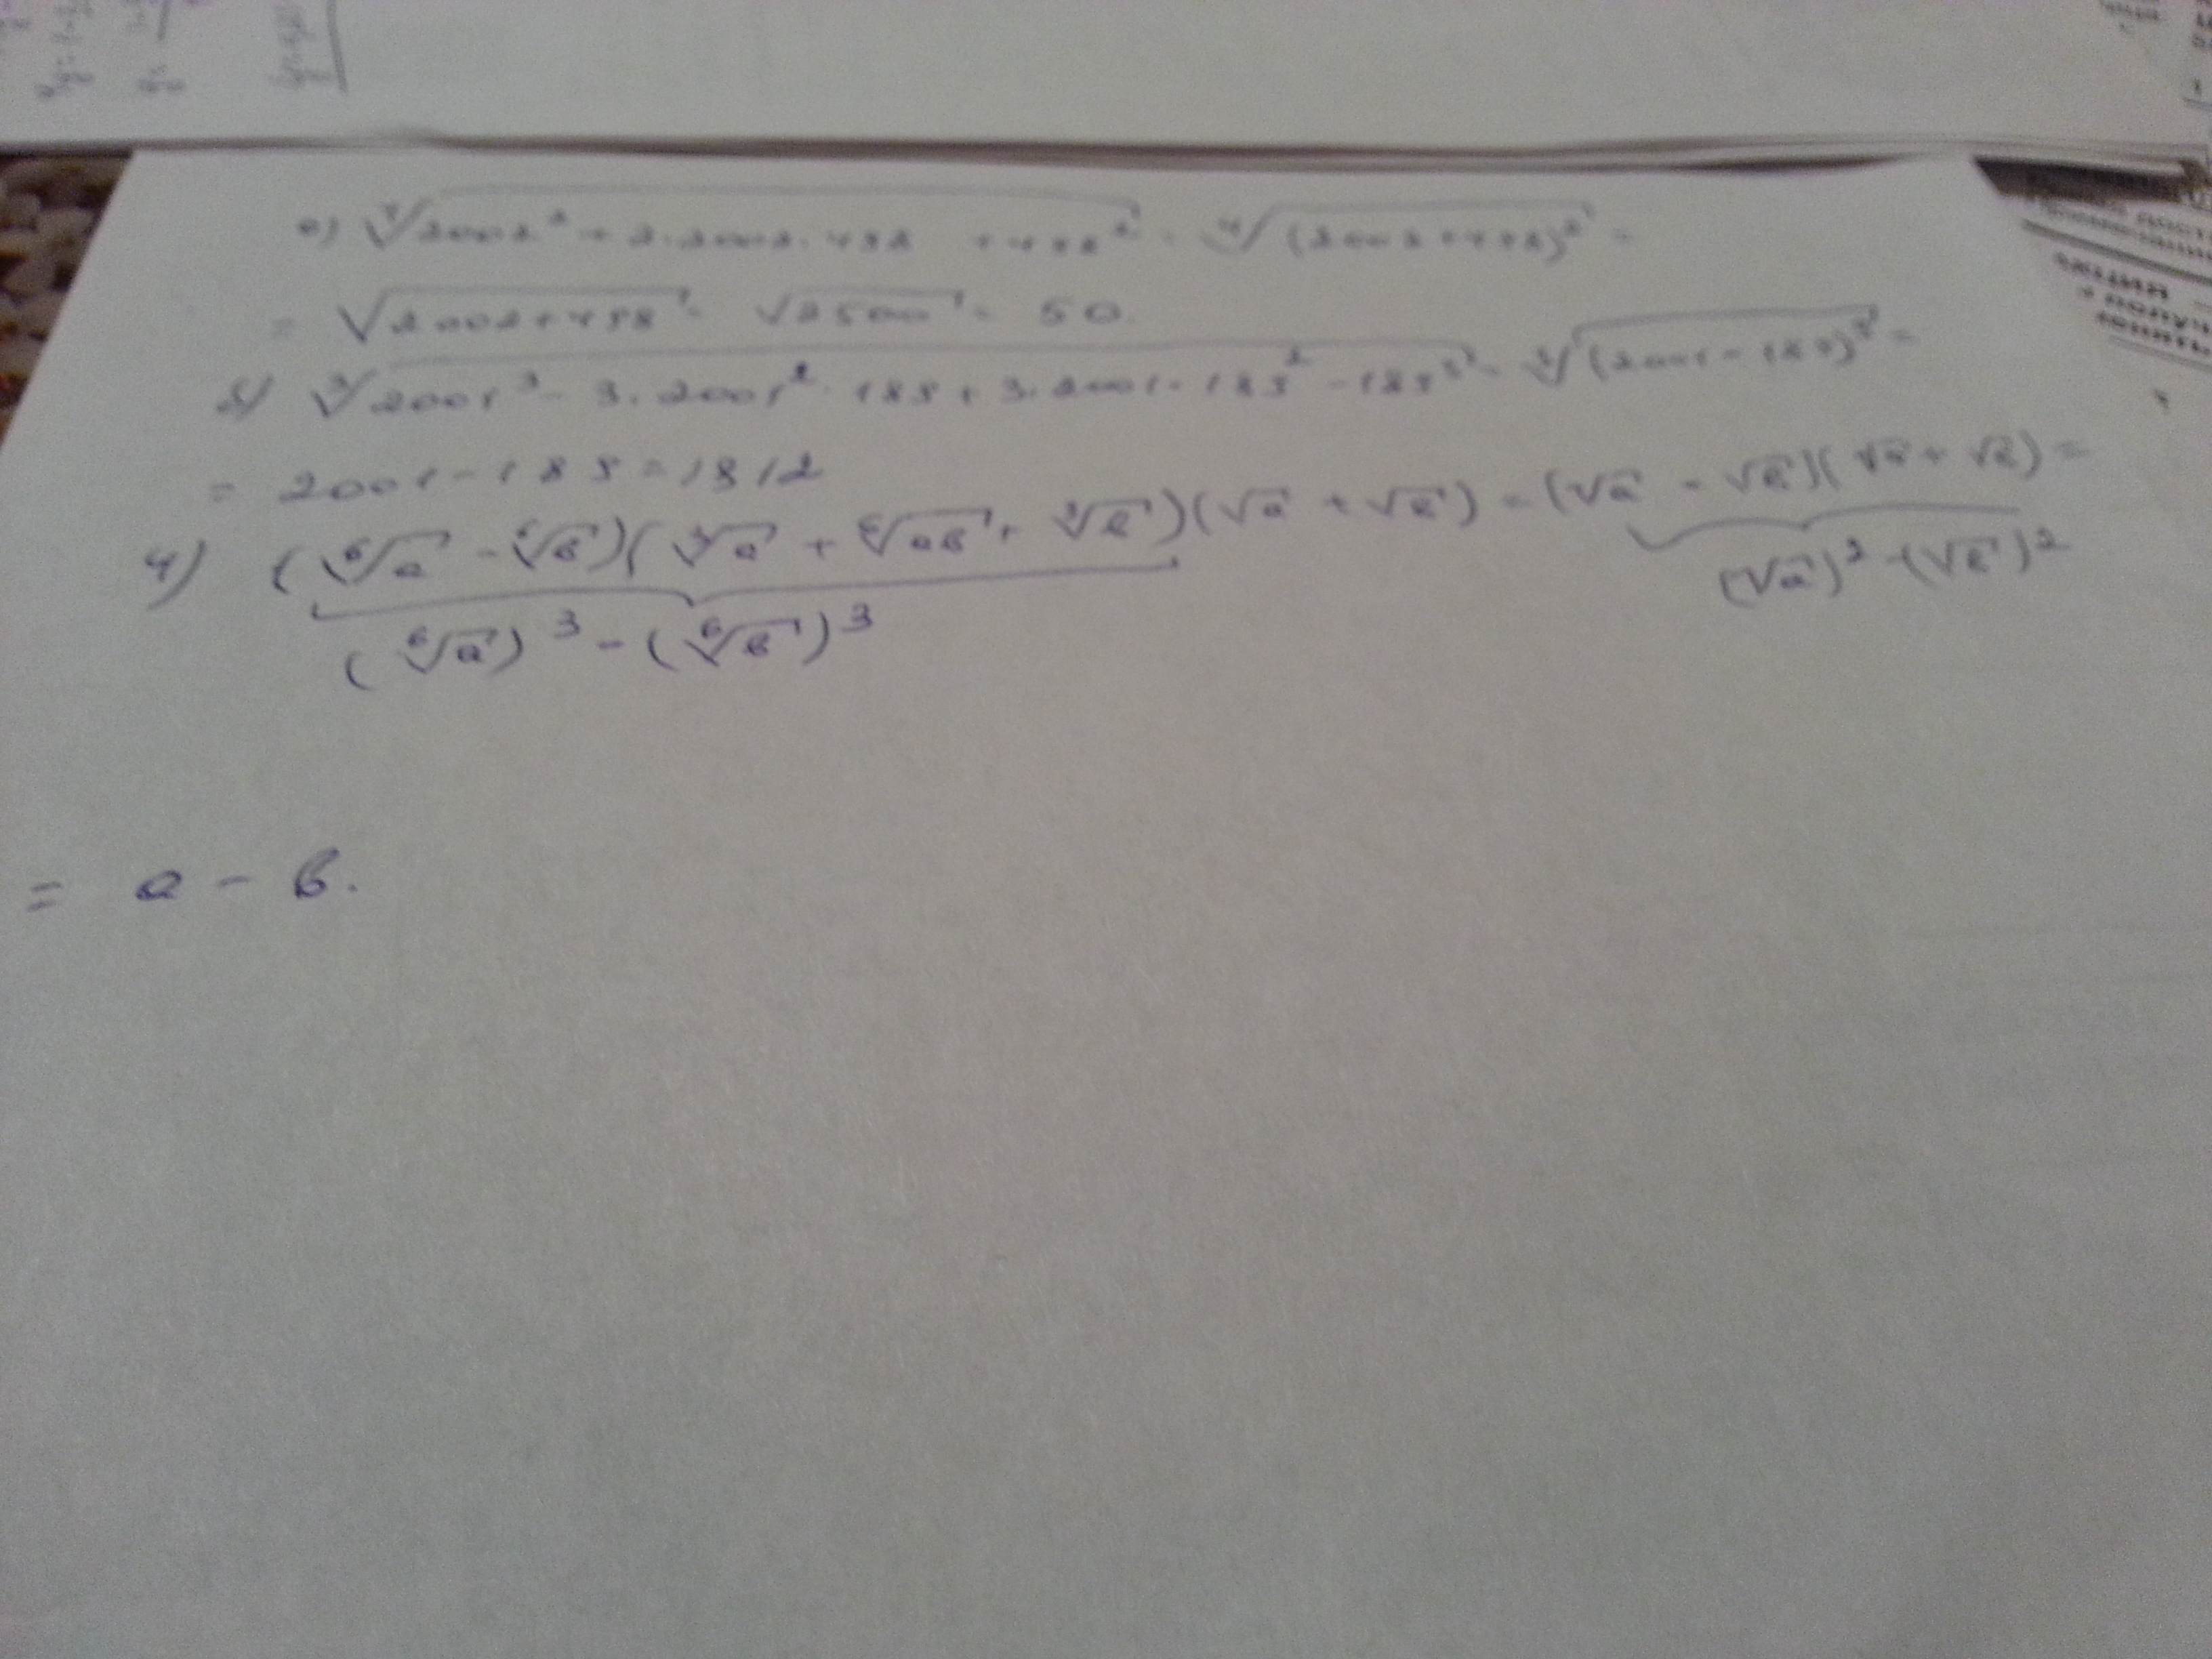 а) ⁴√(2002² + 2·2002·498 + 498²) = ⁴√((2002+498)²) =
= √(2002+498) = √2500 = 50.
б) ³√(2001³ - 3·2001²·189 + 3·2001·189² - 189³) = ³√((2001-189)³) =
= 2001-189 = 1812
4) (⁶√a - ⁶√b)(³√a + ⁶√ab + ³√b)(√a + √b) = (√a - √b)(√a + √b) =
(⁶√a)³ - (⁶√b)³ (√a)² - (√b)²
= a - b.